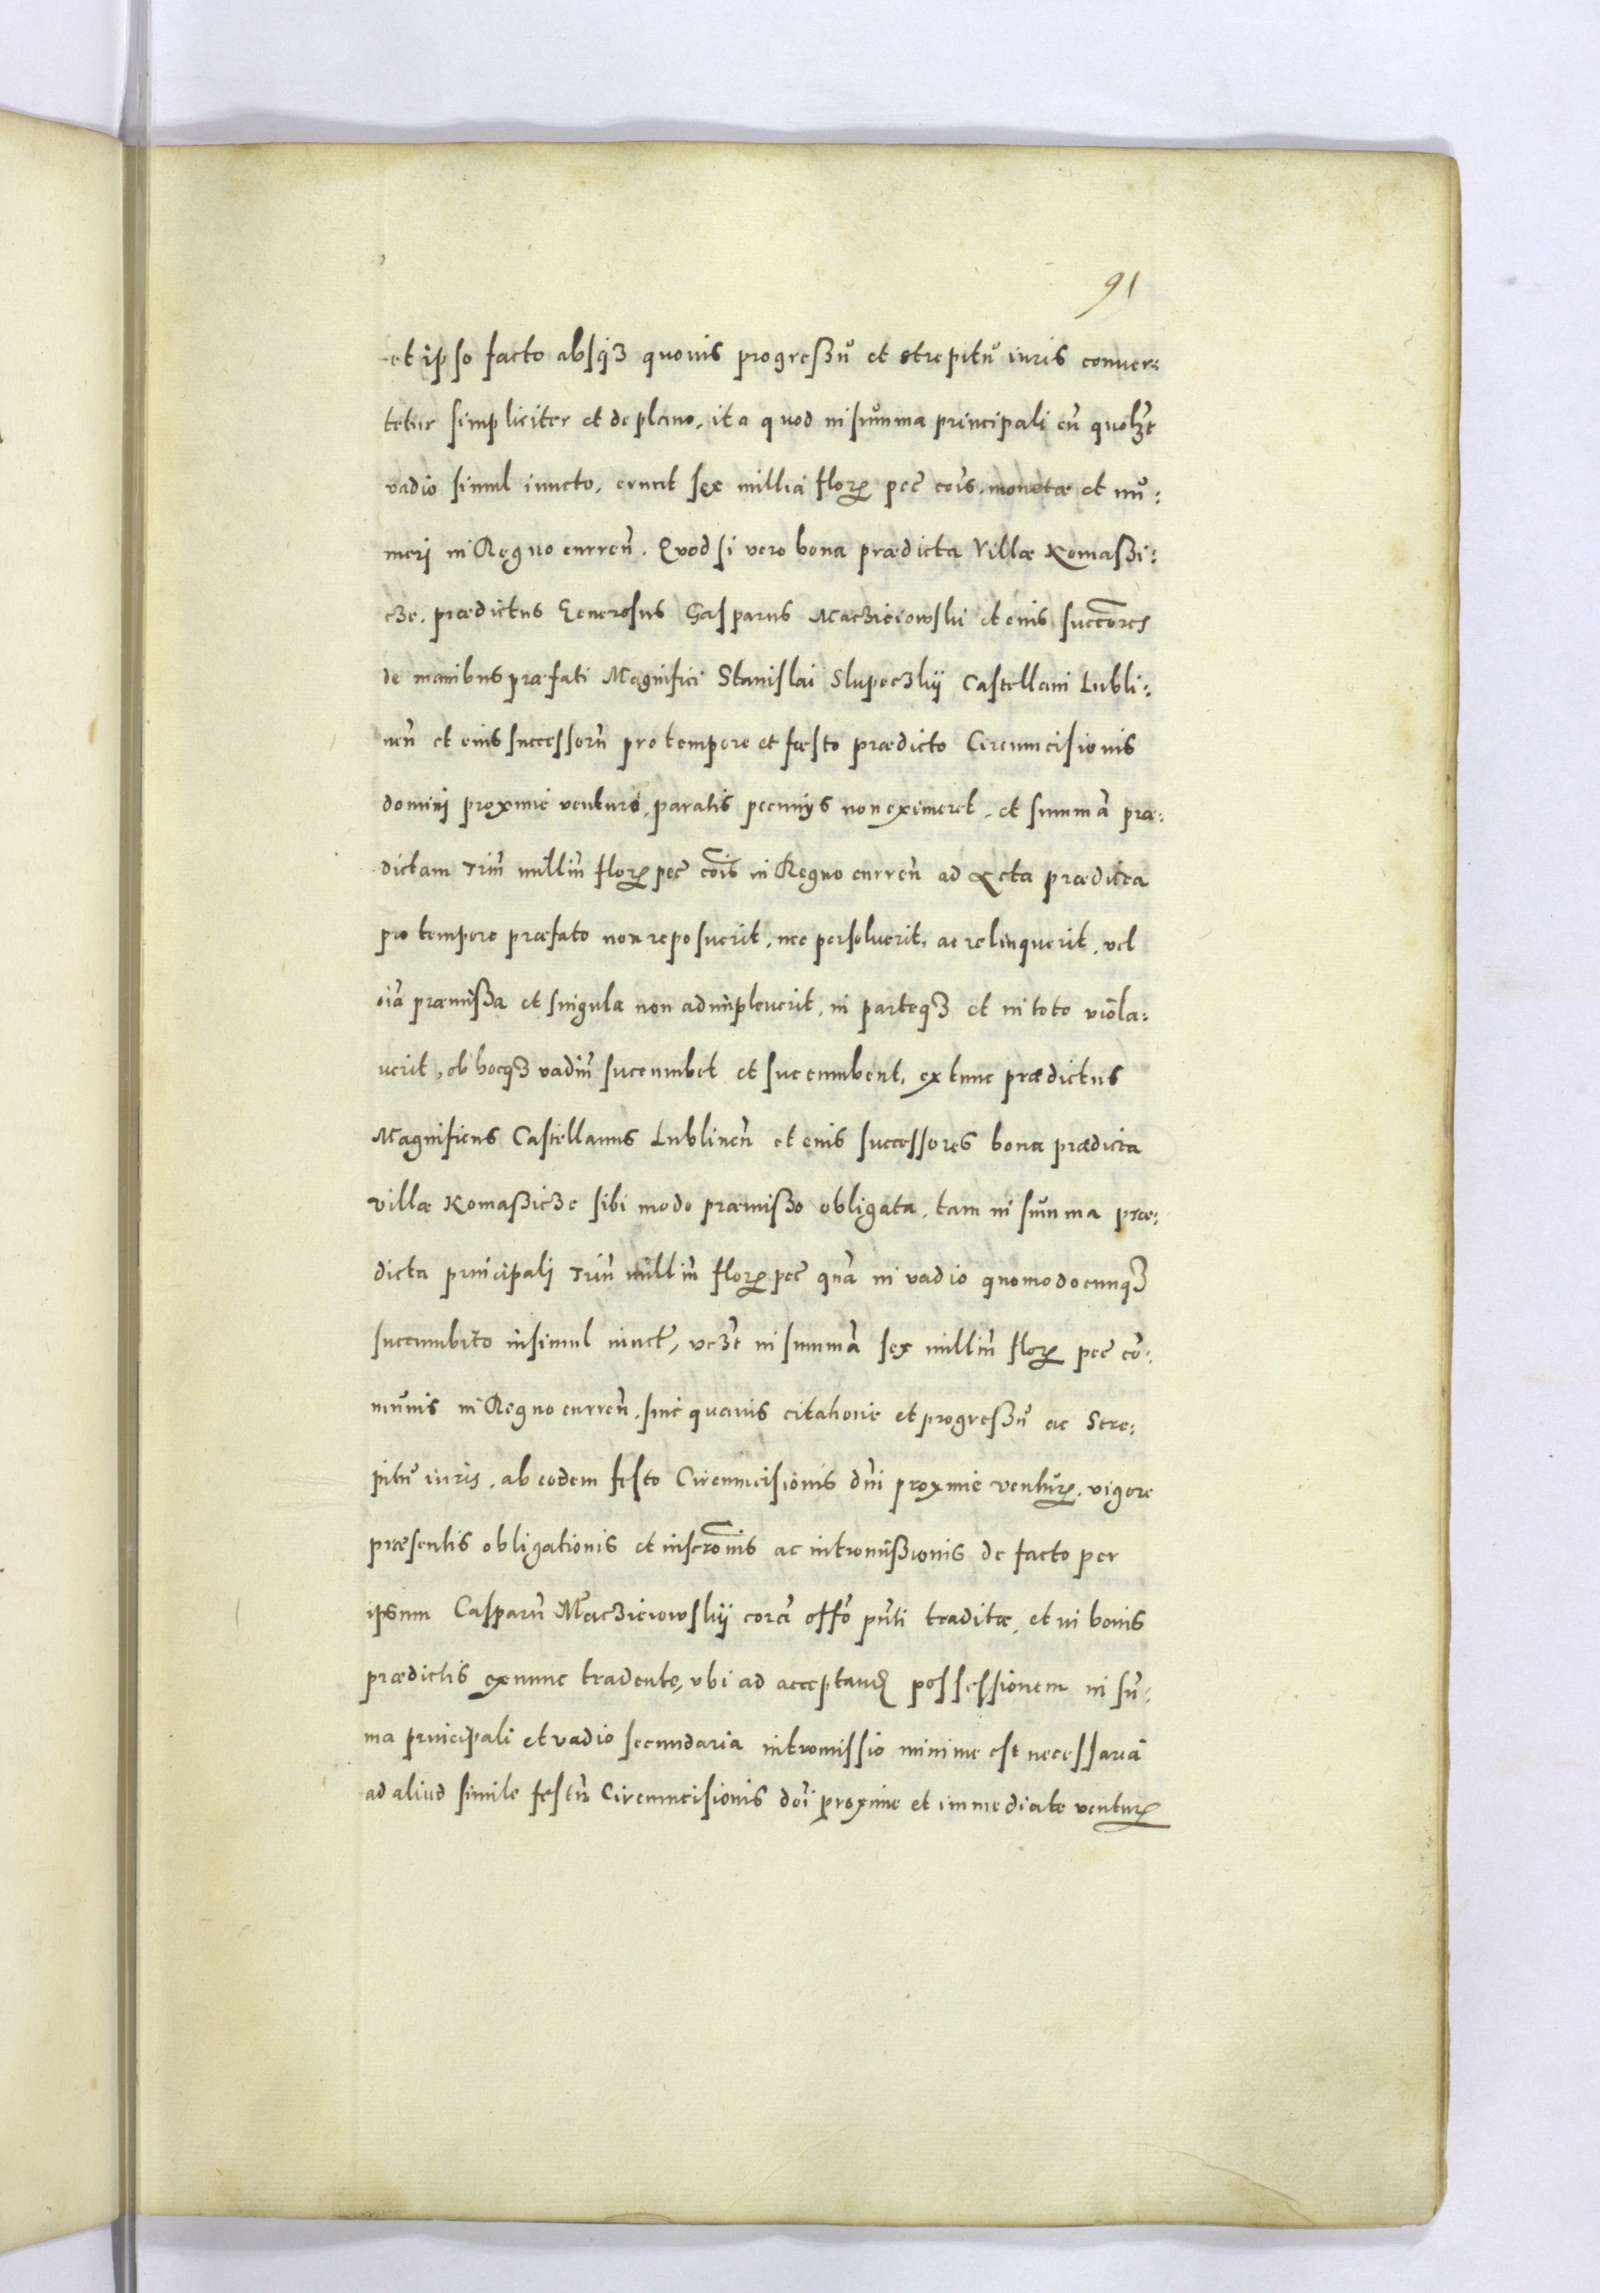 91
et ipso facto absq3 quouis progressu et strepitu iuris conuer:
tetur simpliciter et de plano, ita quod in summa principali cu quolzt
vadio simul iuncto, erunt sex millia floroꝝ pec cois monetæ et nu:
meri in Regno curren. Quod si vero bona prædicta Villæ Komaszi:
cze, prædictus Generosus Gasparus Maczieiowski et eius successores
de manibus præfati Magnifici Stanislai Slupeczkij Castellani Lubli:
nen et eius successoru pro tempore et fæsto prædicto Circumcisionis
domini proxime venturo, paratis pecunijs non eximeret, et summã præ:
dictam Triu milliu floroꝝ pec cois in Regno curren ad Acta prædicta
pro tempore præfato non reposuerit, nec persoluerit, ac relinquerit, vel
oia præmissa et singula non adimpleuerit, in parteq3 et in toto viola:
uerit, ob hocq3 vadiu succumbet et succumbent, ex tunc prædictus
Magnificus Castellanus Lublinen et eius successores bona prædicta
villæ Komaszicze sibi modo præmisso obligata, tam in summa præ:
dicta principali Triu milliu floroꝝ pec quã in vadio quomodocunq3
succumbito insimul iunct, vczt in summã sex milliu floroꝝ pec co:
munis in Regno curren, sine quauis citatione et progressu ac Stre:
pitu iuris, ab eodem festo Circumcisionis dni proxime venturoꝝ, vigore
præsentis obligationis et inscronis ac intromissionis de facto per
ipsum Casparu Macziciowskij corã offo pnti traditæ, et in bonis
prædictis ex nunc tradente, vbi ad acceptand possessionem in su:
ma principali et vadio secundaria intromissio minime est necessaria
ad aliud simile festu Circumcisionis doi proxime et immediate venturoꝝ